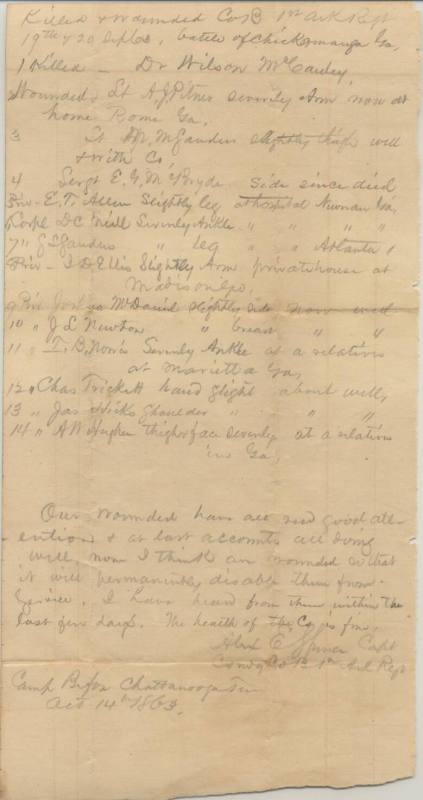 Killed & wounded Co B 1st Ark Regt
19th & 20 Sept 63, battle of Chickamauga Ga,
1 Killed — Dr Wilson McCauley,
Wounded, Lt A.J. Pitner severely Arm now at
home Rome Ga.
3 Lt M. M. Gauders slightly thigh well
& with Co
4 Sergt E. G. McBryde Side since died
Priv— E. T. Allen Slightly leg at hospital Newnan Ga,
Corpl DC Neill Severely Ankle " " " "
7 " G S Gauders " leg " " Atlanta
Priv— I D Ellis Slightly Arm private house at
Madison Ga.
9 Priv Joshua McDavid slightly side now well
10 " J L Newton " breast " "
11 " T. B. Norris Severely Ankle at a relatives
at Marietta Ga,
12 " Chas Trickett hand slight about well,
13 " Jas Hicks Shoulder " " "
14 " A W Hughen thigh & face severely at a relatives
in Ga,
Our wounded have all good att-
ention & at last accounts all doing
well, none I think are wounded so that
it will permanently disable them from
Service. I have heard from them within the
last few days. The health of the Co is fine
Alex C Capt
Comdg Co B 1st Ark Regt
Camp Before Chattanooga Ten
Oct 14th 1863.